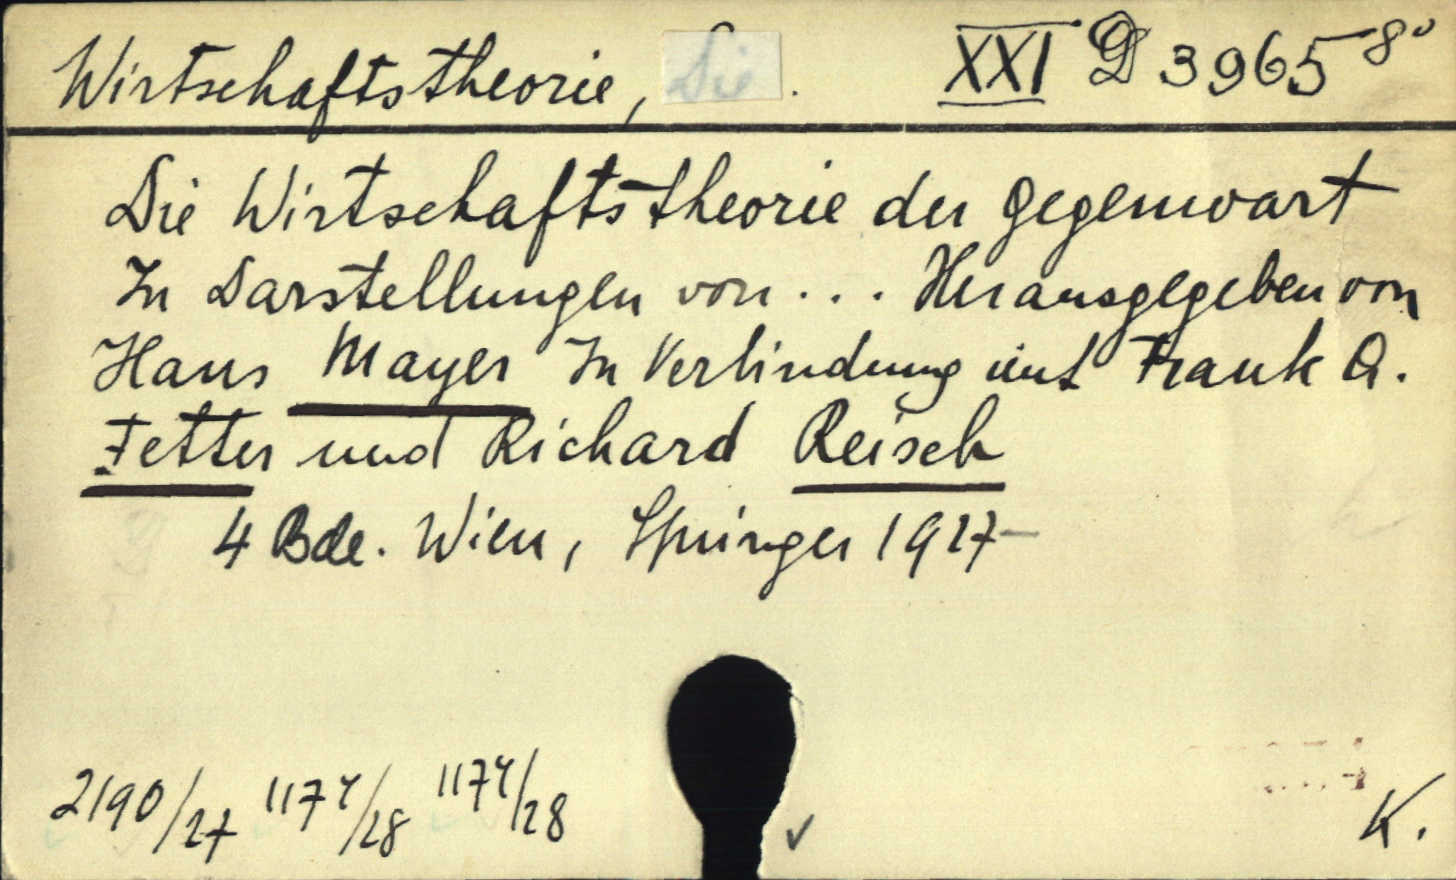 Wirtschaftstheorie, Die. XXI D 3965 8°
Die Wirtschaftstheorie der Gegenwart
In Darstellungen von ... Herausgegeben von
Hans Mayer In Verbindung mit Frank A.
Fetter und Richard Reisch
4 Bde. Wien, Springer 1927-
2190/27 1174/28 1174/28
K.